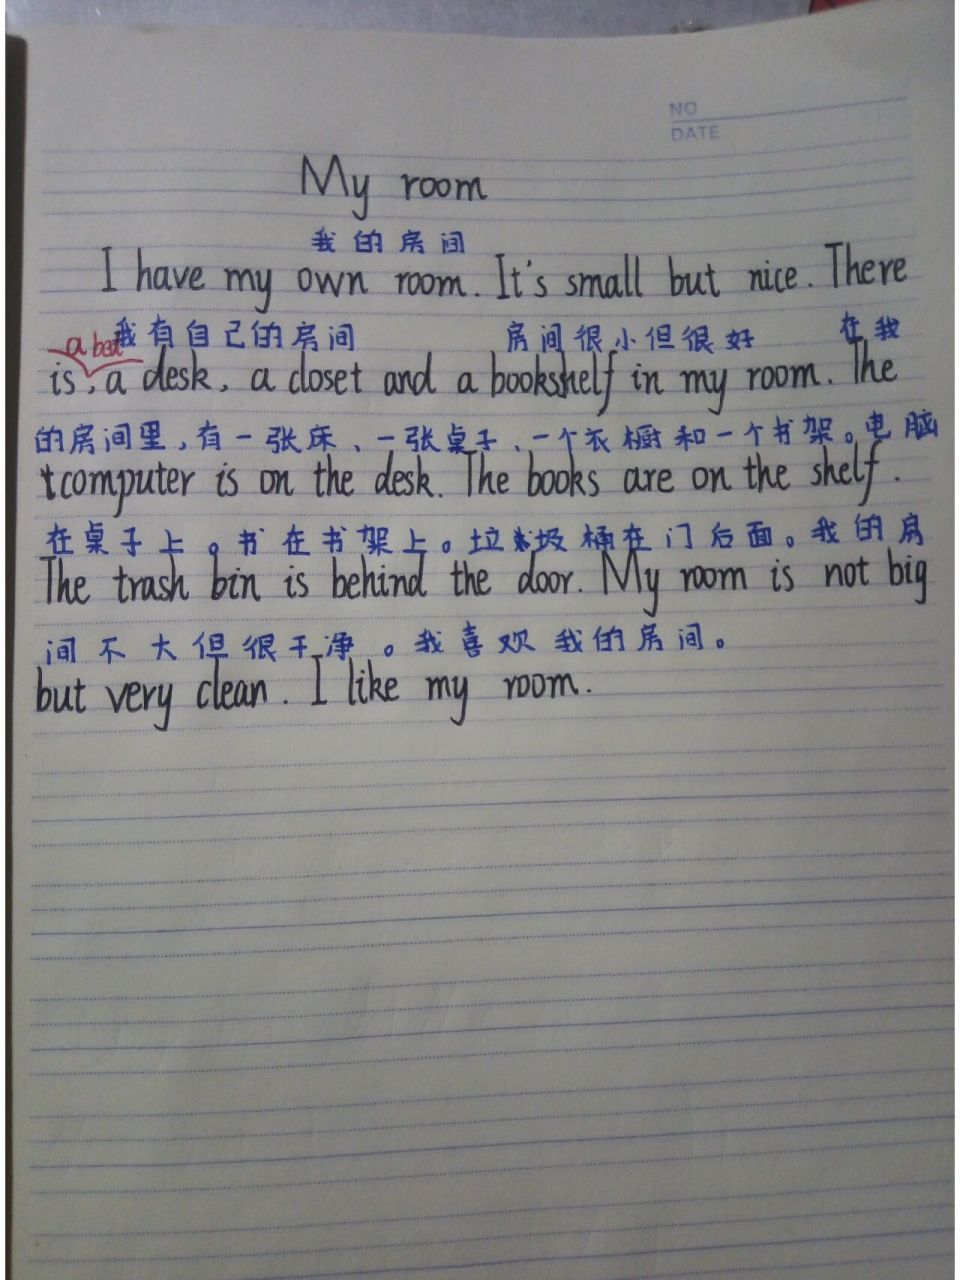 NO
DATE
My room
我的房间
I have my own room. It's small but nice. There
我有自己的房间 房间很小但很好 在我
a bed
is, a desk, a closet and a bookshelf in my room. The
的房间里,有一张床、一张桌子、一个衣橱和一个书架。电脑
computer is on the desk. The books are on the shelf.
在桌子上。书在书架上。垃圾桶在门后面。我的房
The trash bin is behind the door. My room is not big
间不大但很干净。我喜欢我的房间。
but very clean. I like my room.